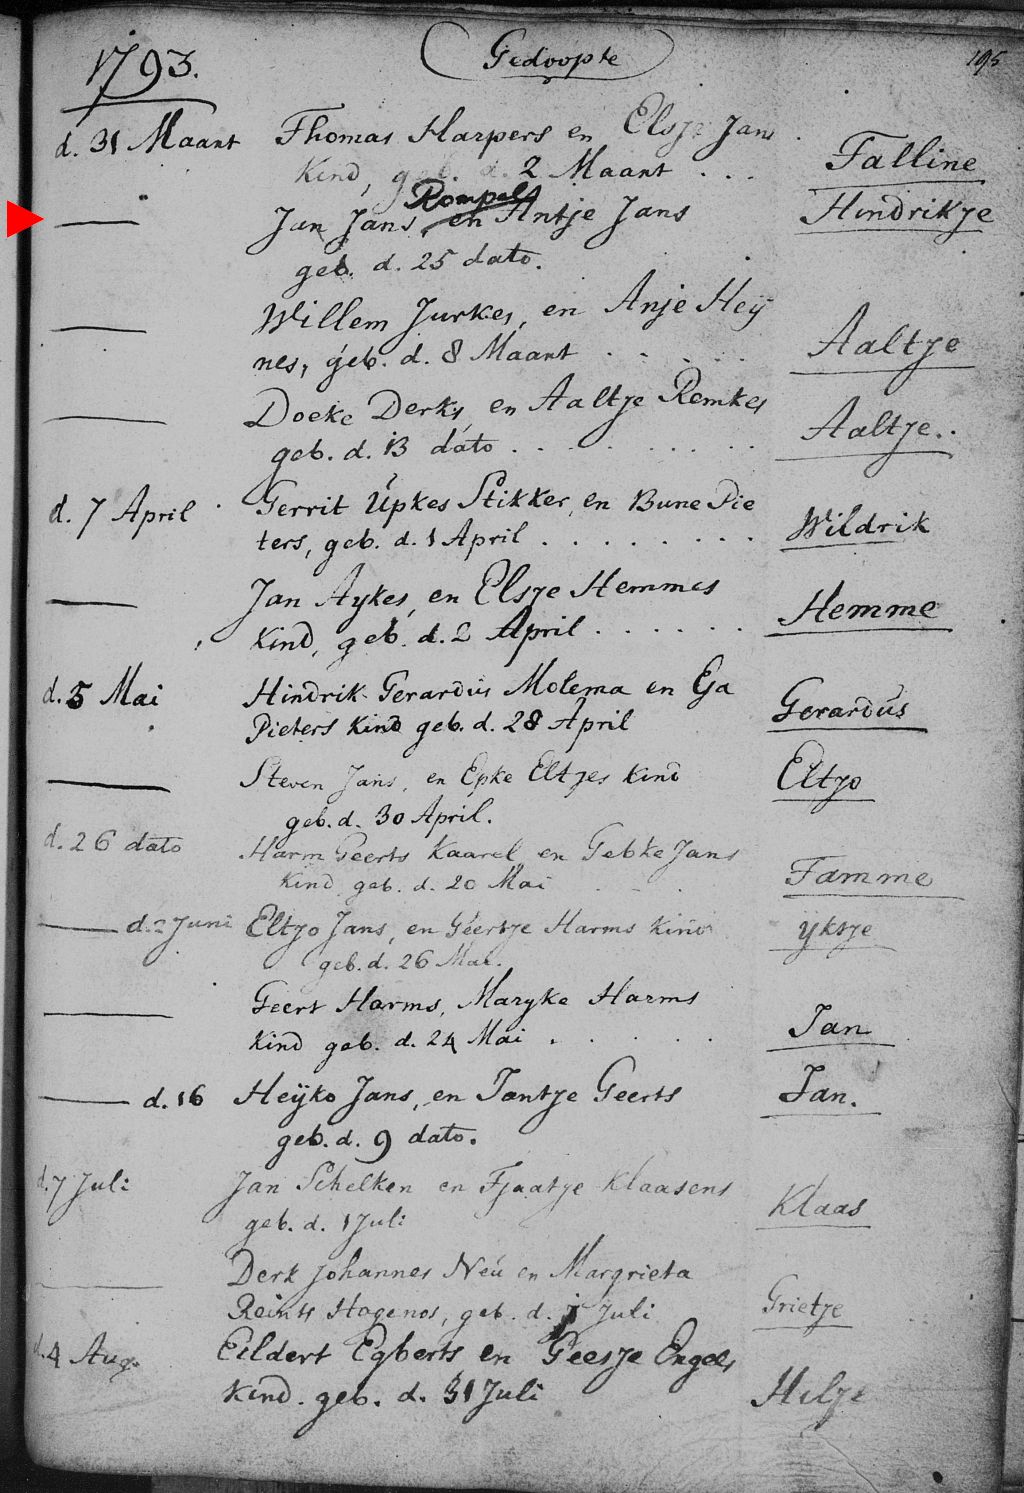 1793.
Gedoopte
195
d. 31 Maart Thomas Harpers en Elsje Jans
Kind, geb. d. 2 Maart . . . Talline
Rompels
Jan Jans, en Antje Jans Hindrikje
geb. d. 25 dato.
Willem Jurkes, en Anje Hey
nes, geb. d. 8 Maart . . . . . Aaltje
Doeke Derks, en Aaltje Remkes
geb. d. 13 dato . . . . . . . . Aaltje..
d. 7 April Gerrit Upkes Stikker, en Bune Pie
ters, geb. d. 1 April . . . . . . . . Wildrik
Jan Aykes, en Elsje Hemmes
Kind, geb. d. 2 April . . . . . . Hemme
d. 5 Mai Hindrik Gerardus Molema en Eja
Pieters Kind geb. d. 28 April Gerardus
Steven Jans, en Epke Eltjes Kind Eltjo
geb. d. 30 April.
d. 26 dato Harm Geerts Kaarel en Gebke Jans
Kind geb. d. 20 Mai . . . Tamme
d. 2 Juni Eltjo Jans, en Geertje Harms Kind ijktje
geb. d. 26 Mai.
Geert Harms, Maryke Harms
Kind geb. d. 24 Mai . . . . . Jan
d. 16 Heijko Jans, en Tantje Geerts Jan.
geb. d. 9 dato.
d. 7 Juli Jan Schelken en Fjaatje Klaasens
geb. d. 1 Juli Klaas
Derk Johannes Neu en Margrieta
Reints Hagenos, geb. d. 1 Juli Grietje
d. 4 Aug. Eildert Egberts en Geesje Engels
Kind. geb. d. 31 Juli Hilje